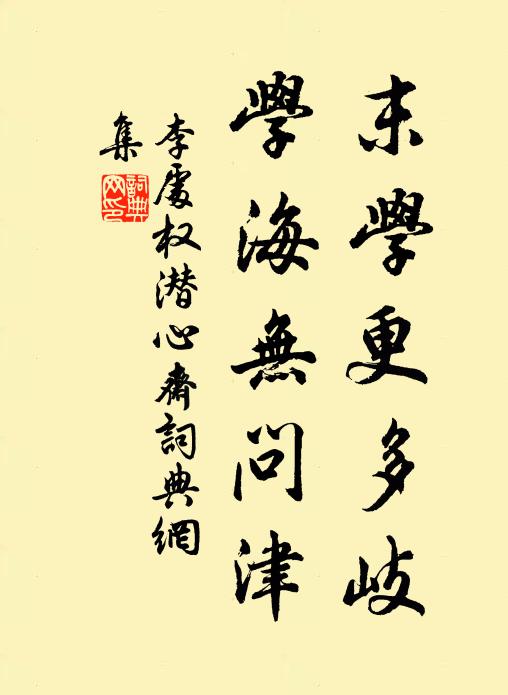 末學更多岐
學海無問津
李處权潜心齋詞典網
集
詞典
网印